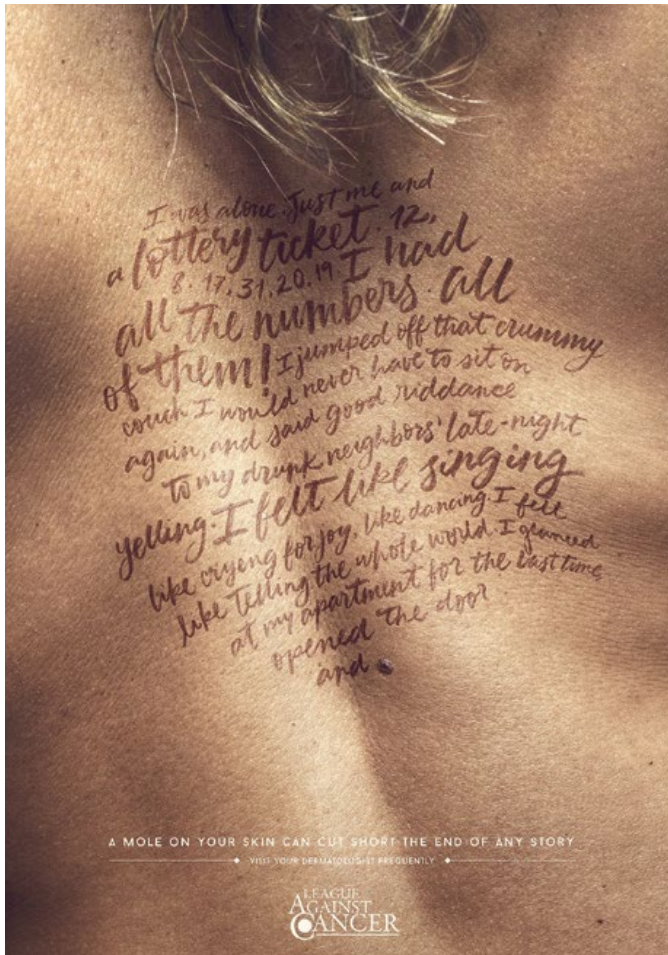 I was alone. Just me and
a lottery ticket. 12,
8. 17, 31, 20, 19 I had
all the numbers. all
of them! I jumped off that crummy
couch I would never have to sit on
again, and said good riddance
to my drunk neighbors' late-night
yelling. I felt like singing
like cryeng for joy, like dancing. I felt
like telling the whole world. I glanced
at my apartment for the last time,
opened the door
and
A MOLE ON YOUR SKIN CAN CUT SHORT THE END OF ANY STORY
VISIT YOUR DERMATOLOGIST FREQUENTLY
LEAGUE
AGAINST
CANCER